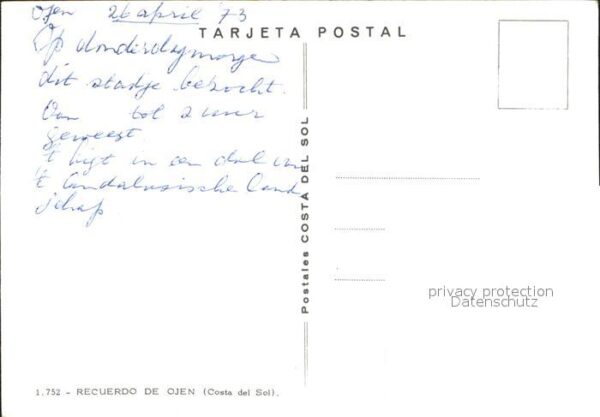 Ojen 26 april '73
Op donderdagmorgen
dit stadje bezocht.
tot 2 uur
geweest
't ligt in een dal van
't Andalusische land
schap
TARJETA POSTAL
Postales COSTA DEL SOL
privacy protection
Datenschutz
1.752 - RECUERDO DE OJEN (Costa del Sol).